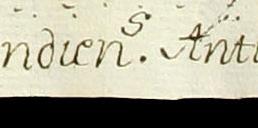 ndienˢ. Anti